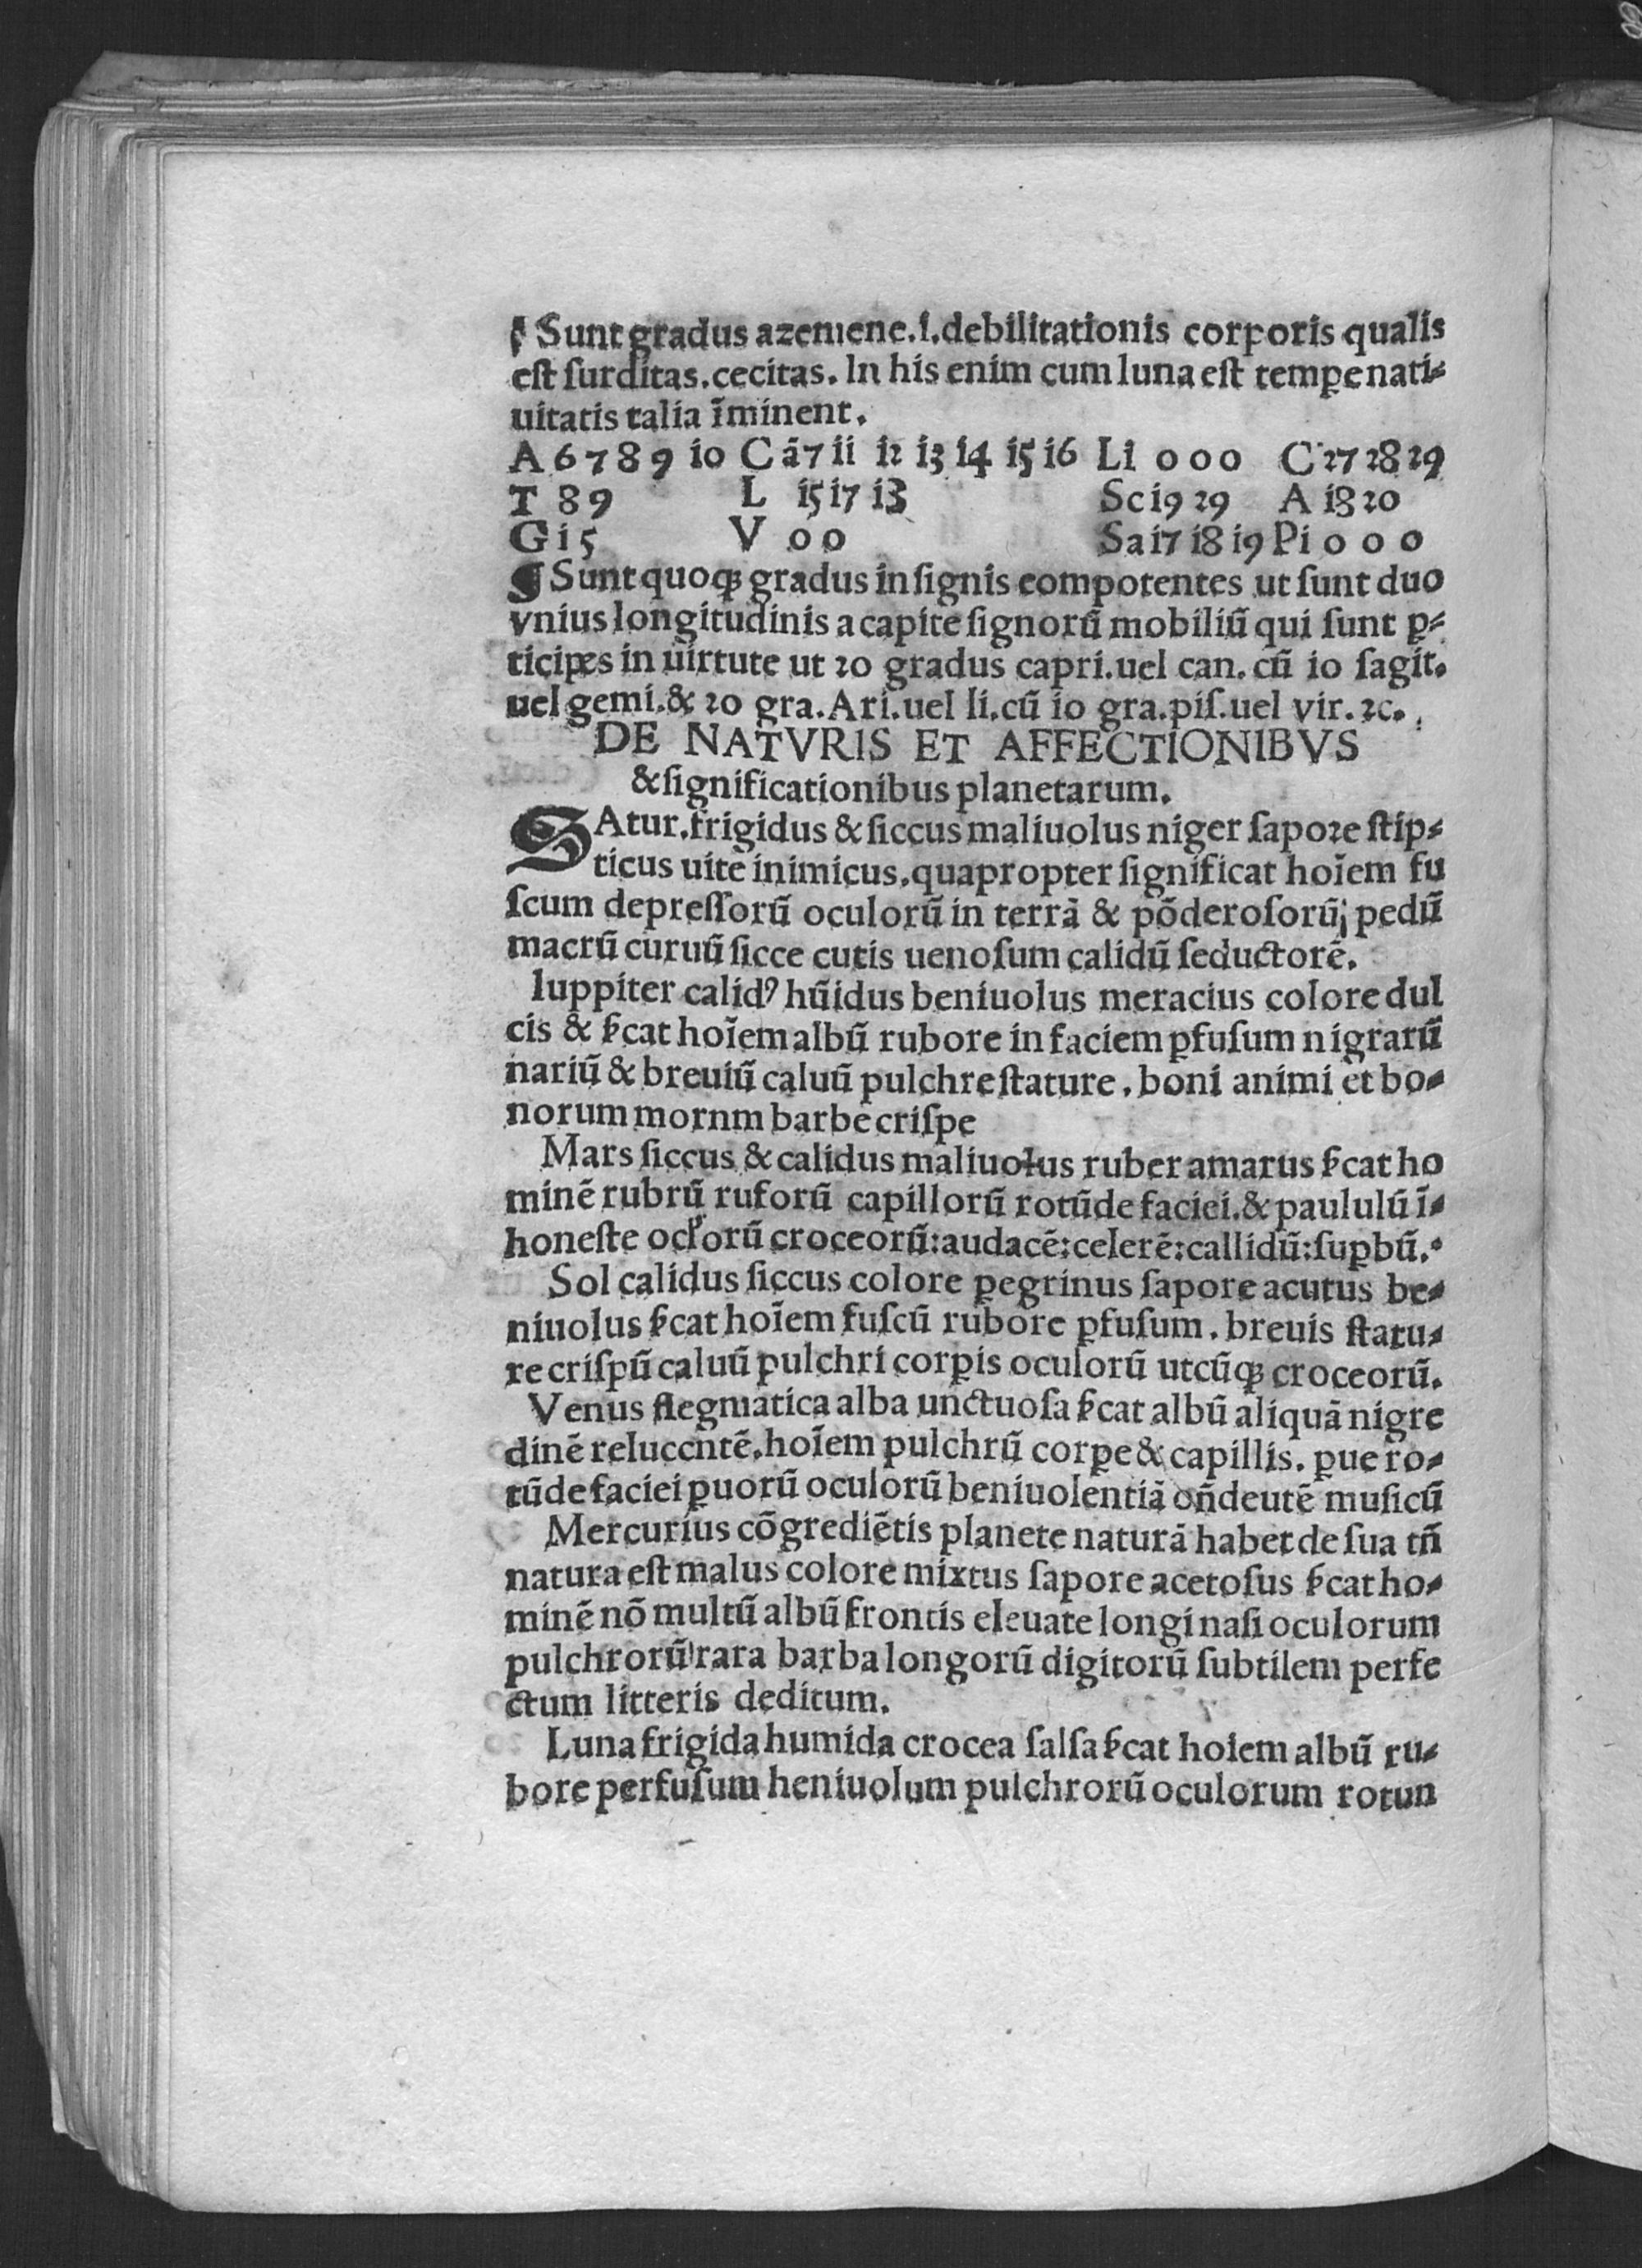 ¶ Sunt gradus azemene.i.debilitationis corporis qualis
est ſurditas.cecitas. In his enim cum luna est tempꝑe nati⸗
uitatis talia ĩminent.
A 6 7 8 9 io Cã 7 ii i2 i3 i4 i5 i6 Li o o o C 27 28 29
T 8 9 L i5 i7 i8 Sc i9 29 A i8 20
G i5 V o o Sa i7 i8 i9 Pi o o o
¶ Sunt quoqꝫ gradus in ſignis compotentes ut ſunt duo
vnius longitudinis a capite ſignorũ mobiliũ qui ſunt ꝑ⸗
ticipes in uirtute ut 20 gradus capri.uel can.cũ io ſagit.
uel gemi.& 20 gra.Ari.uel li.cũ io gra.piſ.uel vir.⁊c.
DE NATVRIS ET AFFECTIONIBVS
& ſignificationibus planetarum.
SAtur.frigidus & ſiccus maliuolus niger ſapoꝛe ſtip⸗
ticus uite inimicus.quapropter ſignificat hoĩem fu
ſcum depreſſorũ oculorũ in terrã & põderoſorũ pedũ
macrũ curuũ ſicce cutis uenoſum calidũ ſeductorẽ.
Iuppiter calidꝰ hũidus beniuolus meracius colore dul
cis & ẜcat hoĩem albũ rubore in faciem ꝑfuſum nigrarũ
nariũ & breuiũ caluũ pulchre ſtature.boni animi et bo⸗
norum mornm barbe criſpe
Mars ſiccus & calidus maliuolus ruber amarus ẜcat ho
minẽ rubrũ ruforũ capillorũ rotũde faciei.& paululũ ĩ⸗
honeſte ocƚorũ croceorũ:audacẽ:celerẽ:callidũ:ſuꝑbũ.
Sol calidus ſiccus colore ꝑegrinus ſapore acutus be⸗
niuolus ẜcat hoĩem fuſcũ rubore ꝑfuſum.breuis ſtatu⸗
re criſpũ caluũ pulchri corꝑis oculorũ utcũqꝫ croceorũ.
Venus flegmatica alba unctuoſa ẜcat albũ aliquã nigre
dinẽ reluccntẽ.hoĩem pulchrũ corꝑe & capillis.ꝑue ro⸗
tũde faciei ꝑuorũ oculorũ beniuolentiã oñdeutẽ muſicũ
Mercurius cõgrediẽtis planete naturã habet de ſua tñ
natura eſt malus colore mixtus ſapore acetoſus ẜcat ho⸗
minẽ nõ multũ albũ frontis eleuate longi naſi oculorum
pulchrorũ rara barba longorũ digitorũ ſubtilem perfe
ctum litteris deditum.
Luna frigida humida crocea ſalſa ẜcat hoiem albũ ru⸗
bore perfuſum heniuolum pulchrorũ oculorum rotun